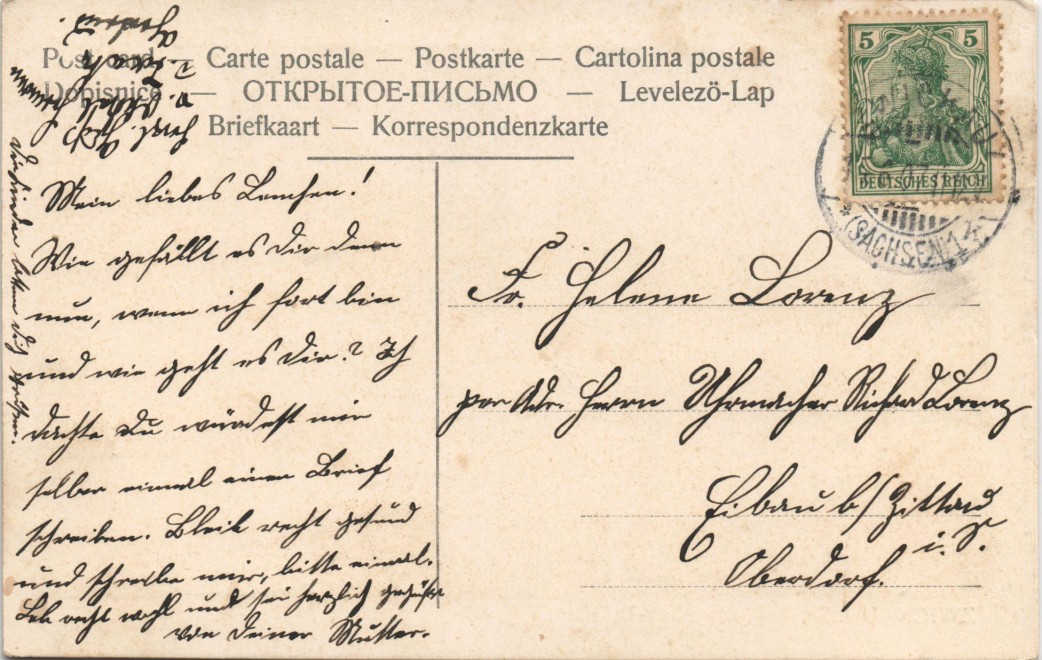 Postcard — Carte postale — Postkarte — Cartolina postale
Dopisnice — ОТКРЫТОЕ-ПИСЬМО — Levelező-Lap
Briefkaart — Korrespondenzkarte
5 5
DEUTSCHES REICH
(SACHSEN)
Mein liebes Lenchen!
Wie gefällt es Dir denn
nun, wenn ich fort bin
und wie geht es Dir? Ich
dachte Du würdest mir
selber einmal einen Brief
schreiben. Bleib recht gesund
und schreibe mir, bitte einmal.
Leb recht wohl und sei herzlich gegrüßt
von Deiner Mutter.
Fr. Helene Lorenz
per Adr. Herrn Uhrmacher Richard Lorenz
Eibau b/Zittau
i. S.
Oberdorf.